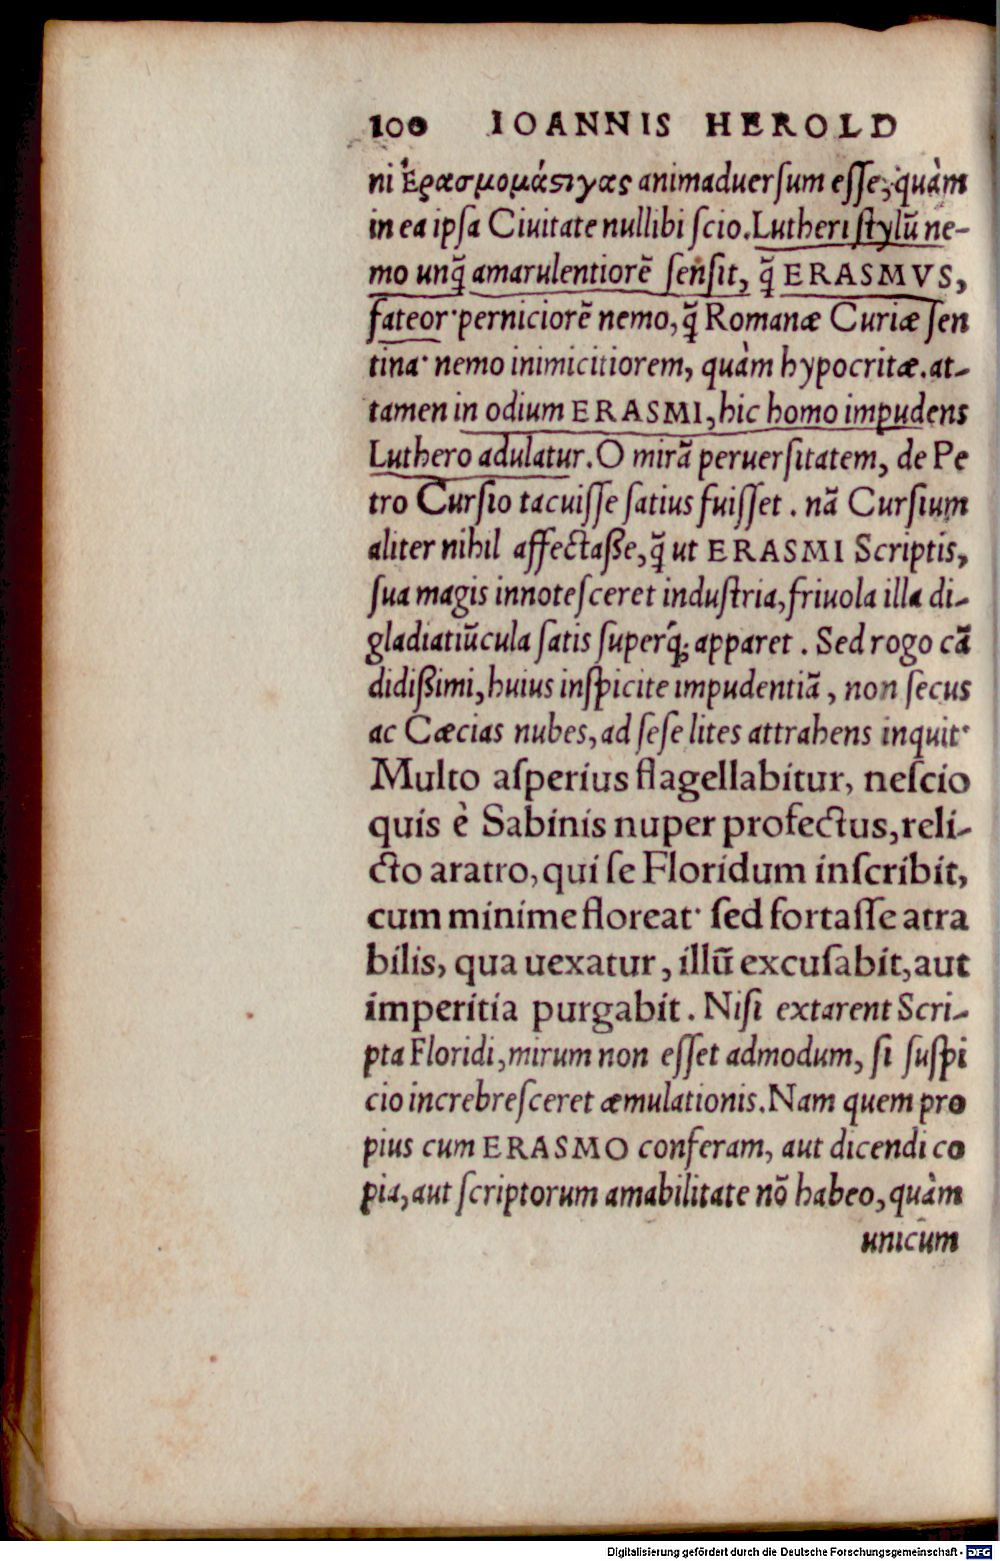 100 IOANNIS HEROLD
ni Ἐρασμομάστιγας animaduerſum eſſe, quàm
in ea ipſa Ciuitate nullibi ſcio. Lutheri ſtylū ne-
mo unq̃ amarulentiorē ſenſit, q̃ ERASMVS,
fateor· perniciorē nemo, q̃ Romanæ Curiæ ſen
tina· nemo inimicitiorem, quàm hypocritæ. at-
tamen in odium ERASMI, hic homo impudens
Luthero adulatur. O mirā peruerſitatem, de Pe
tro Curſio tacuiſſe ſatius fuiſſet. nā Curſium
aliter nihil affectaße, q̃ ut ERASMI Scriptis,
ſua magis innoteſceret induſtria, friuola illa di-
gladiatiūcula ſatis ſuperq́; apparet. Sed rogo cā
didißimi, huius inſpicite impudentiā, non ſecus
ac Cæcias nubes, ad ſeſe lites attrahens inquit·
Multo aſperius flagellabitur, neſcio
quis è Sabinis nuper profectus, reli-
cto aratro, qui ſe Floridum inſcribit,
cum minime floreat· ſed fortaſſe atra
bilis, qua uexatur, illū excuſabit, aut
imperitia purgabit. Niſi extarent Scri-
pta Floridi, mirum non eſſet admodum, ſi ſuſpi
cio increbreſceret æmulationis. Nam quem pro
pius cum ERASMO conferam, aut dicendi co
pia, aut ſcriptorum amabilitate nō habeo, quàm
unicum
Digitalisierung gefördert durch die Deutsche Forschungsgemeinschaft - DFG